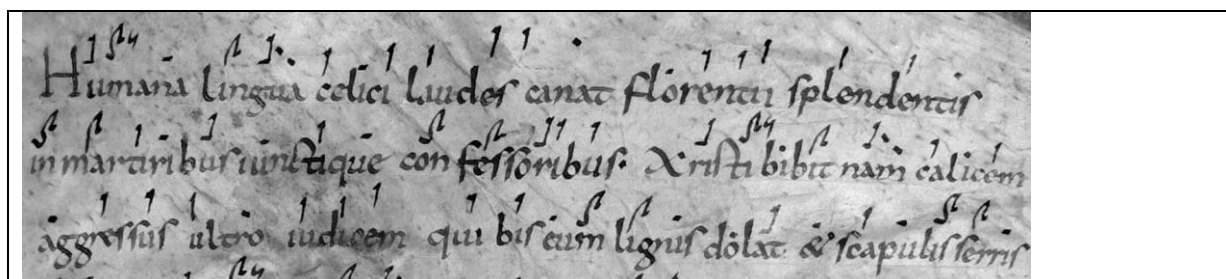 Humana lingua celici laudes canat florentii splendentis
in martiribus iunctique confessoribus. Xristi bibit nam calicem
aggressus ultro iudicem qui bis eum lignis dolat & scapulis serris